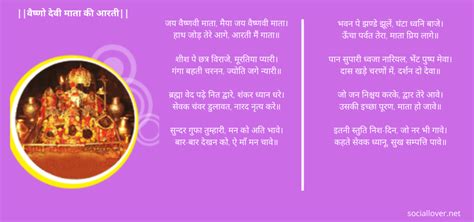 ||वैष्णो देवी माता की आरती||
जय वैष्णवी माता, मैया जय वैष्णवी माता।
हाथ जोड़ तेरे आगे, आरती मैं गाता॥
शीश पे छत्र विराजे, मूरतिया प्यारी।
गंगा बहती चरनन, ज्योति जगे न्यारी॥
ब्रह्मा वेद पढ़े नित द्वारे, शंकर ध्यान धरे।
सेवक चंवर डुलावत, नारद नृत्य करे॥
सुन्दर गुफा तुम्हारी, मन को अति भावे।
बार-बार देखन को, ऐ माँ मन चावे॥
भवन पे झण्डे झूलें, घंटा ध्वनि बाजे।
ऊँचा पर्वत तेरा, माता प्रिय लागे॥
पान सुपारी ध्वजा नारियल, भेंट पुष्प मेवा।
दास खड़े चरणों में, दर्शन दो देवा॥
जो जन निश्चय करके, द्वार तेरे आवे।
उसकी इच्छा पूरण, माता हो जावे॥
इतनी स्तुति निश-दिन, जो नर भी गावे।
कहते सेवक ध्यानू, सुख सम्पत्ति पावे॥
sociallover.net